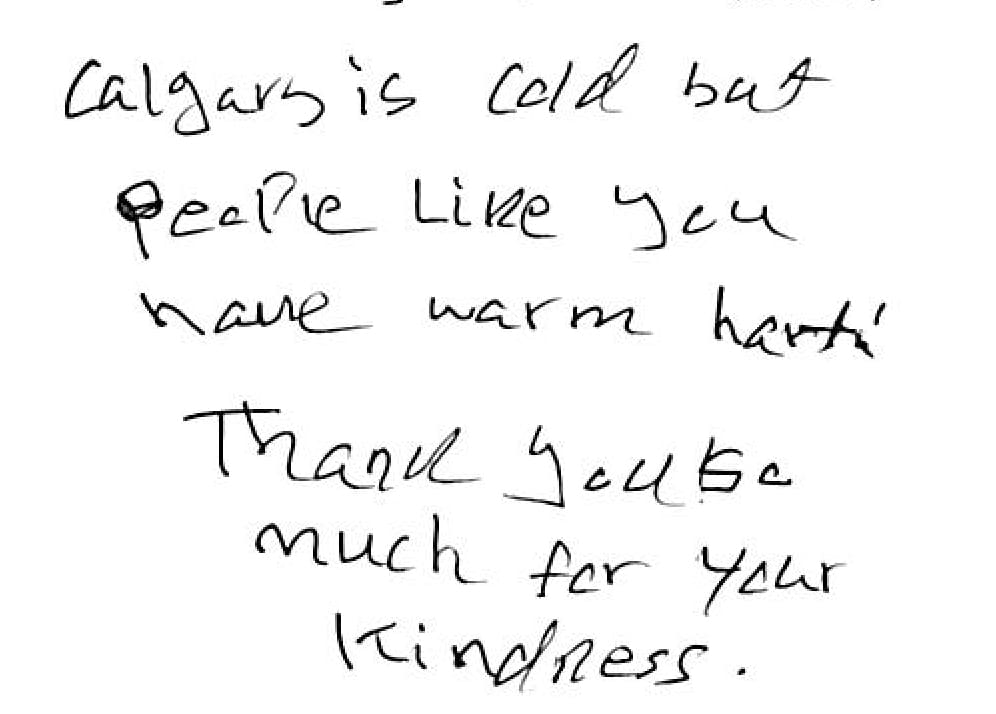 Calgary is cold but
people Like you
have warm hart!
Thank you so
much for your
Kindness.